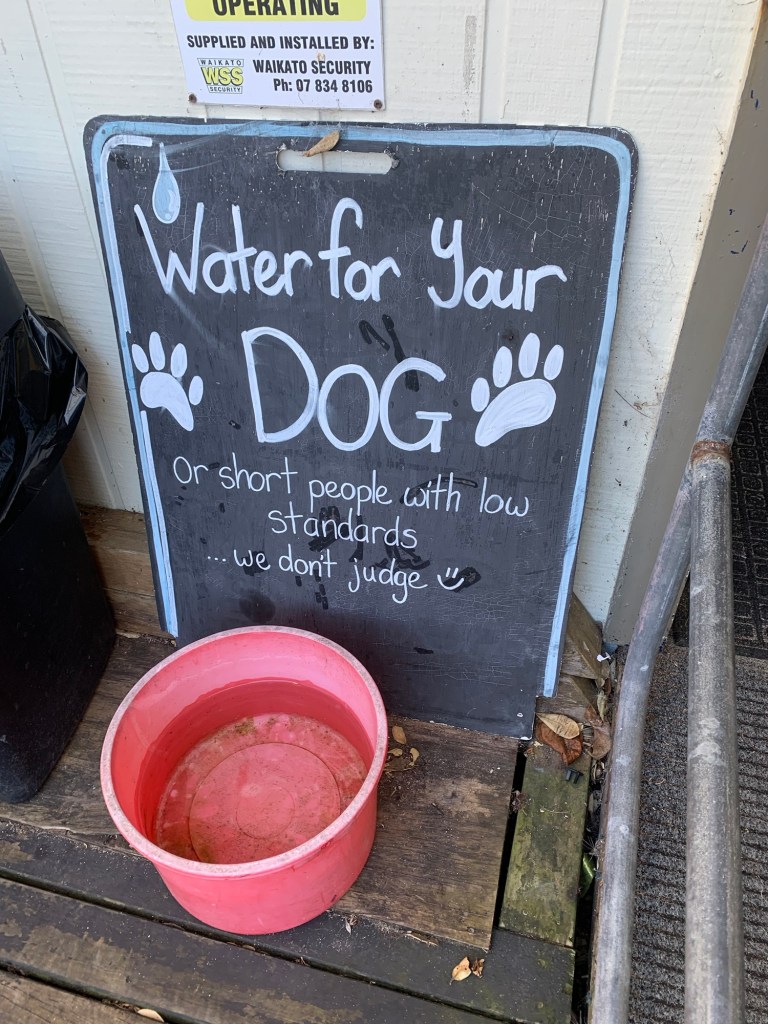 OPERATING
SUPPLIED AND INSTALLED BY:
WAIKATO
WSS
SECURITY
WAIKATO SECURITY
Ph: 07 834 8106
Water for Your
DOG
Or short people with low
standards
... we don't judge